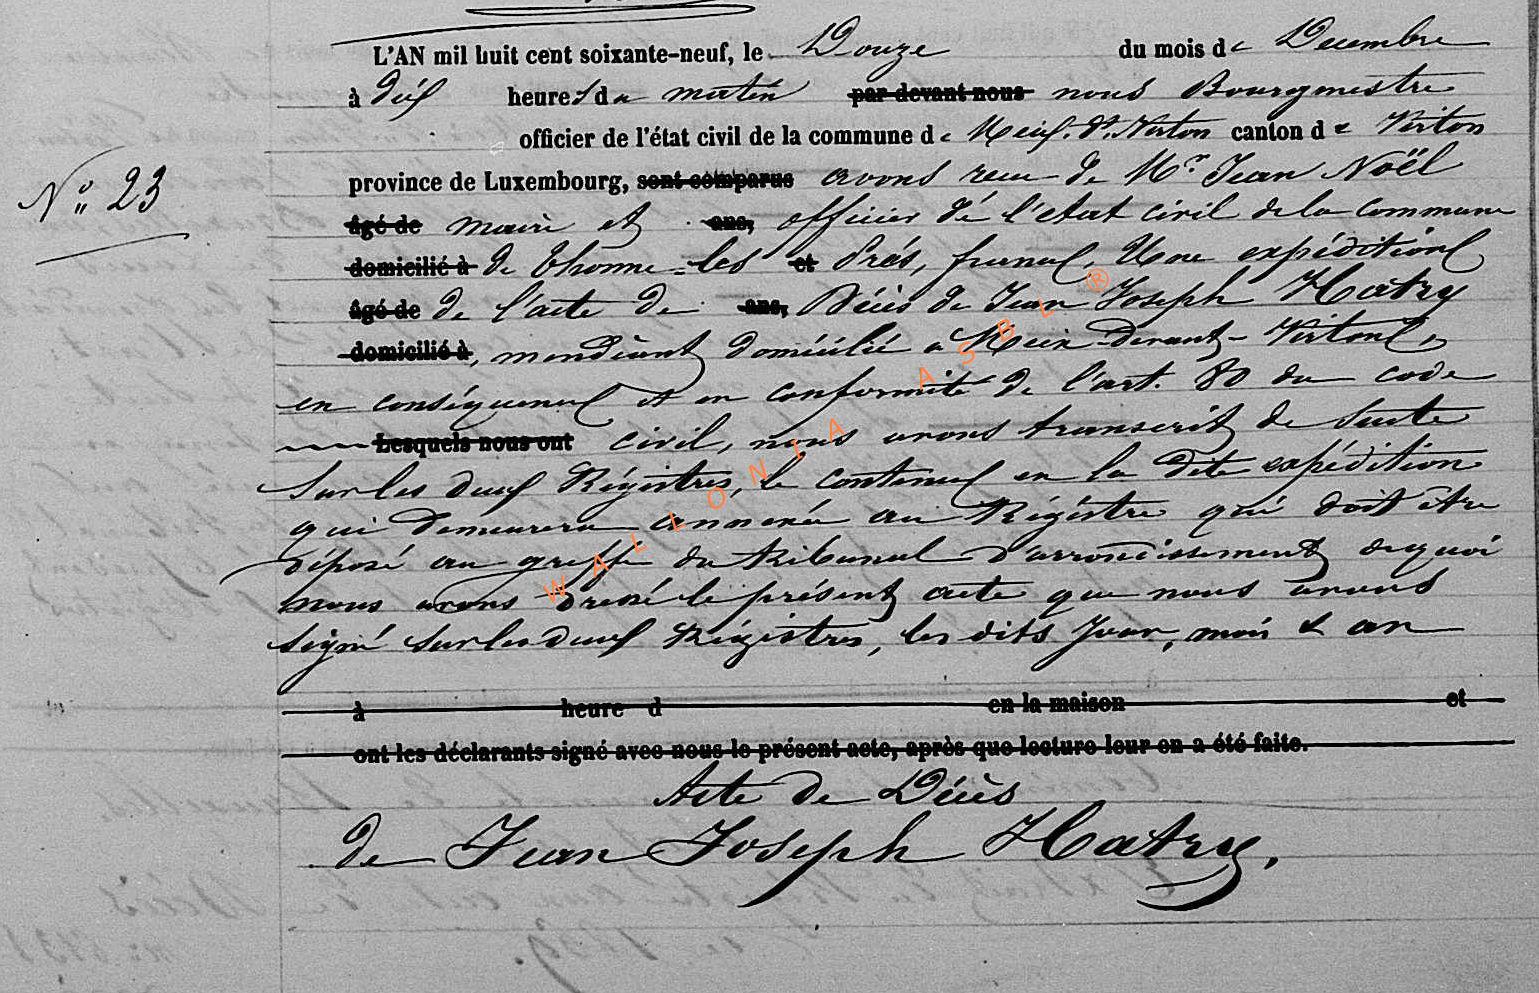 L'AN mil huit cent soixante-neuf, le Douze du mois de Decembre
à dix heures du matin par devant nous nous Bourgmestre
officier de l'état civil de la commune de Meix-dt-Virton canton de Virton
N° 23
province de Luxembourg, sont comparus avons recu de Mr Jean Noël
âgé de maire et ans, officier de l'etat civil de la commune
domicilié à de Thonne-les et Prés, france, Une expédition
âgé de de l'acte de ans, Décès de Jean Joseph Hatry
domicilié à, mendiant domicilié a Meix-Devant-Virton,
en conséquence et en conformité de l'art. 80 du code
Lesquels nous ont civil, nous avons transcrit de suite
Sur les deux Régistres, le contenu en la dite expédition
qui demeurera annexée au Régistre qui doit être
déposé au greffe du tribunal d'arrondissement de quoi
nous avons dressé le présent acte que nous avons
Signé sur les deux Régistres, les dits Jour, mois & an
à heure d en la maison et
ont les déclarants signé avec nous le présent acte, après que lecture leur en a été faite.
Acte de Décès
de Jean Joseph Hatry.
WALLONIA ASBL ®